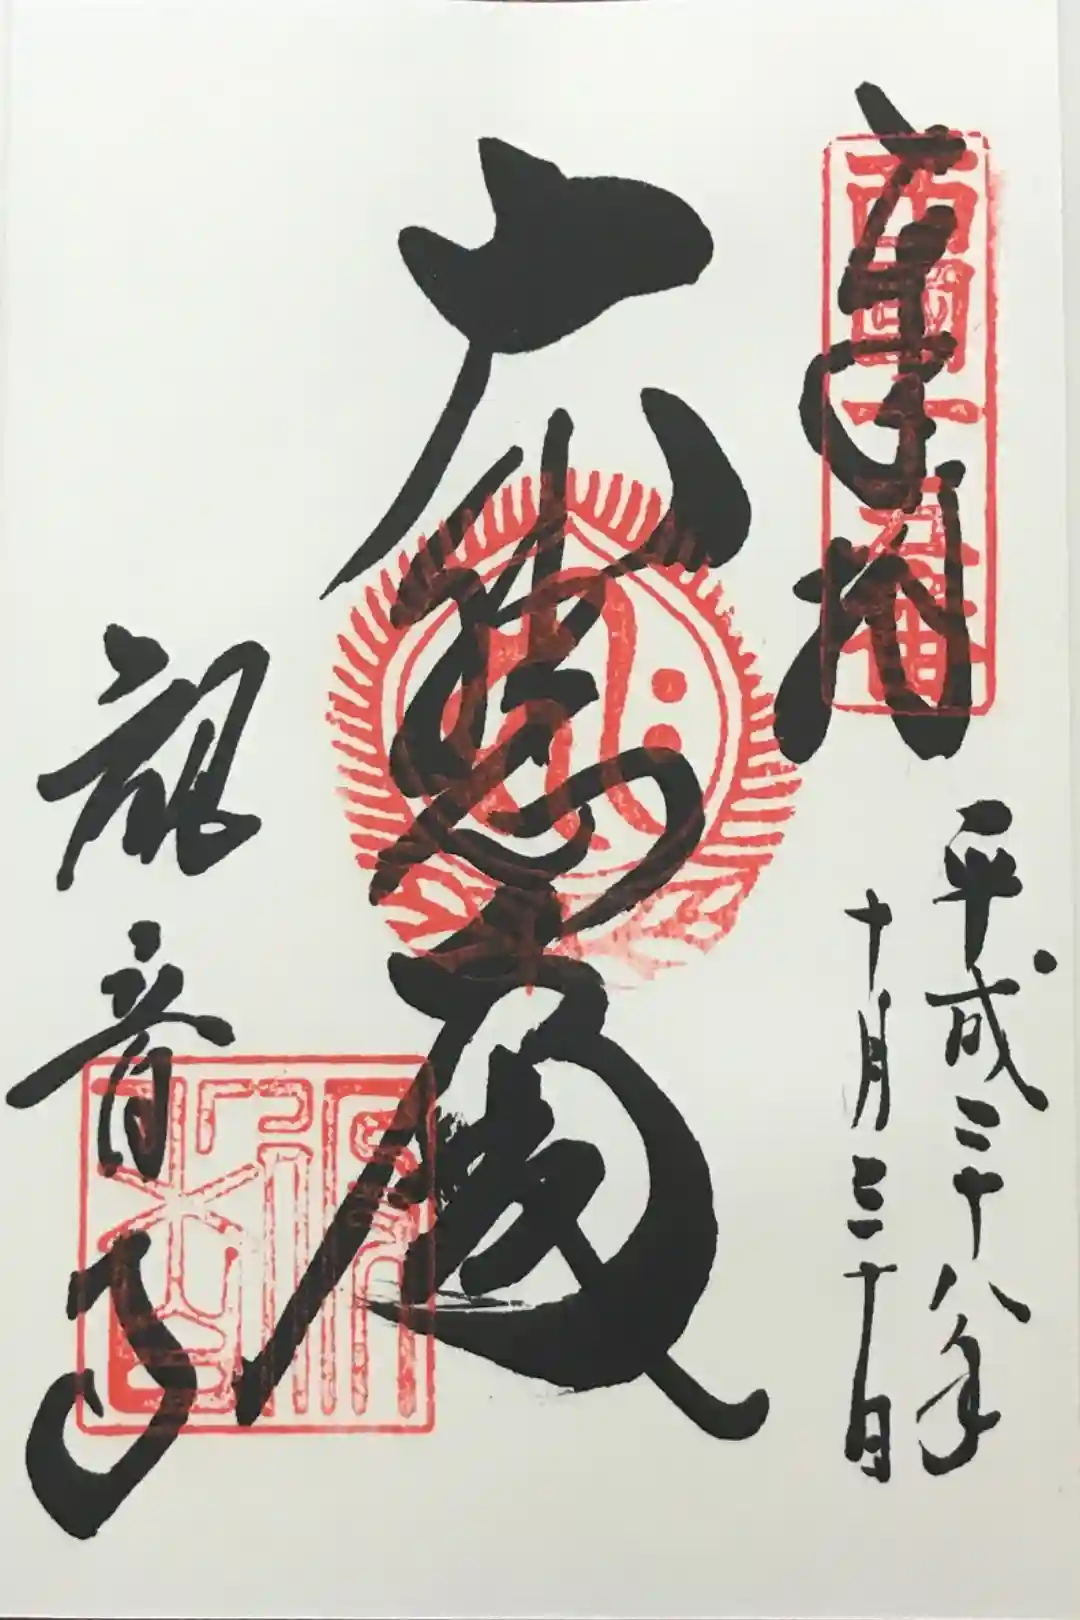 奉拝
西国十五番
平成二十八年
十月三十日
大悲殿
観音寺